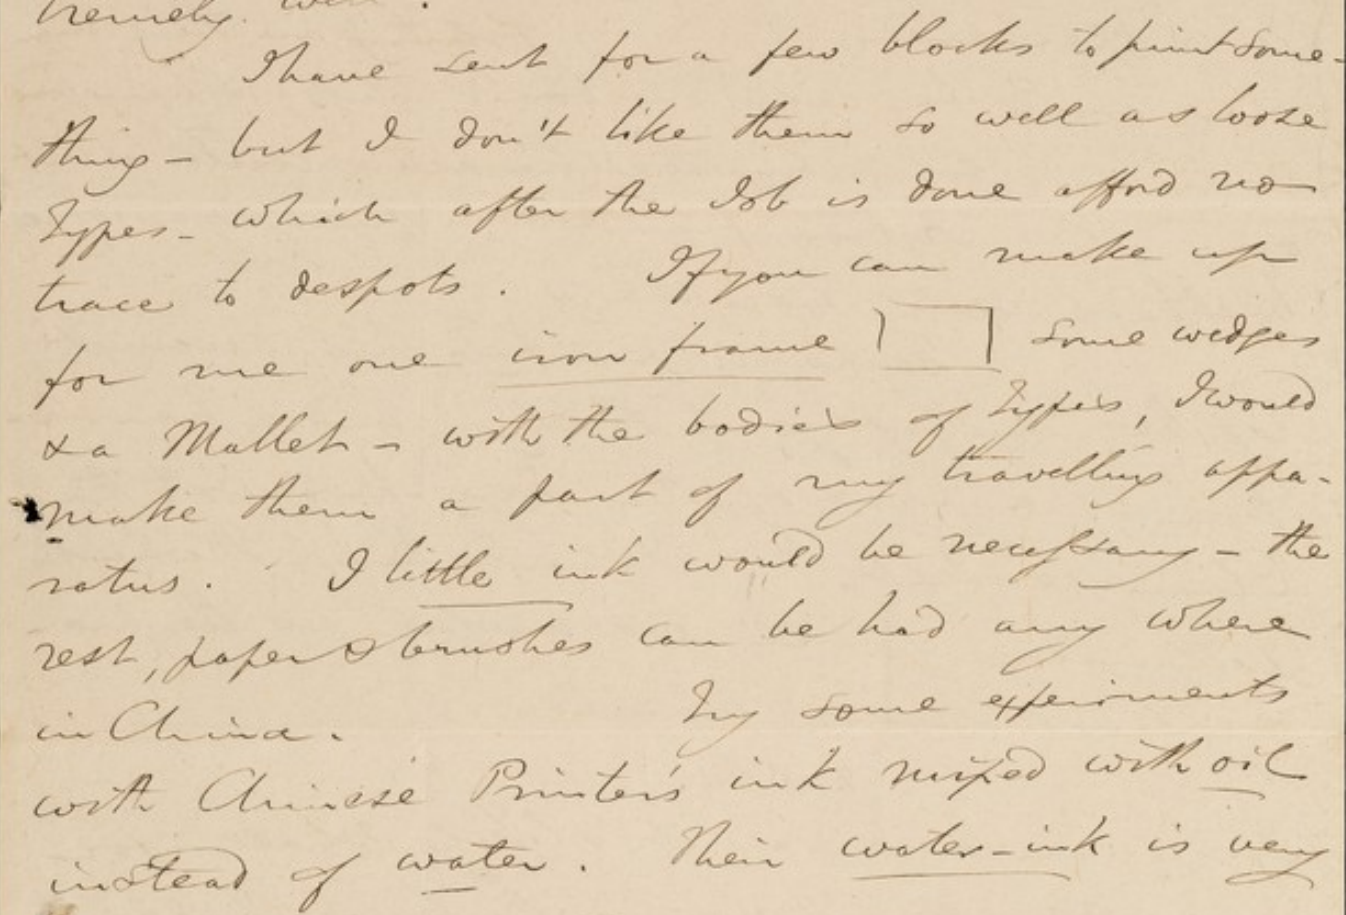 tremely well.
I have sent for a few blocks to print some-
thing – but I don't like them so well as loose
Types – which after the Job is done afford no
trace to despots. If you can make up
for me one iron frame some wedges
& a Mallet – with the bodies of Types, I would
make them a part of my travelling appa-
ratus. I little ink would be necessary – the
rest, paper & brushes can be had any where
in China. Try some experiments
with Chinese Printer's ink mixed with oil
instead of water. Their water-ink is very